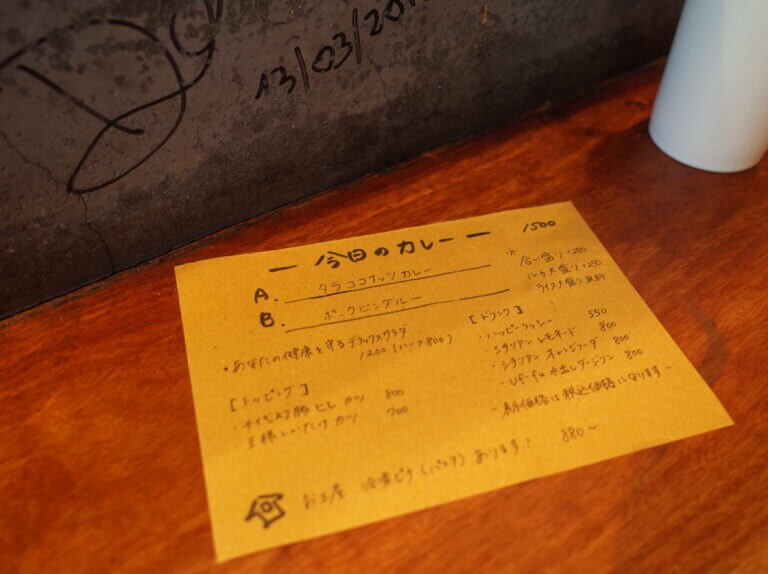 13/03/201
ー 今日のカレー ー 1500
A. タラココナッツカレー
B. ポークビンダルー
合い盛り +250
ルウ大盛り +250
ライス大盛り 無料
・あなたの健康を守るデラックスサラダ
1200 (ハーフ 800)
[トッピング]
ヒレカツ 800
・王様しいたけカツ 700
[ドリンク]
・ハッピーラッシー 550
・シチリアン レモネード 800
・シチリアン オレンジソーダ 800
・Uf-fu 水出しダージリン 800
- 表示価格は税込価格になります -
お土産 あります! 880~